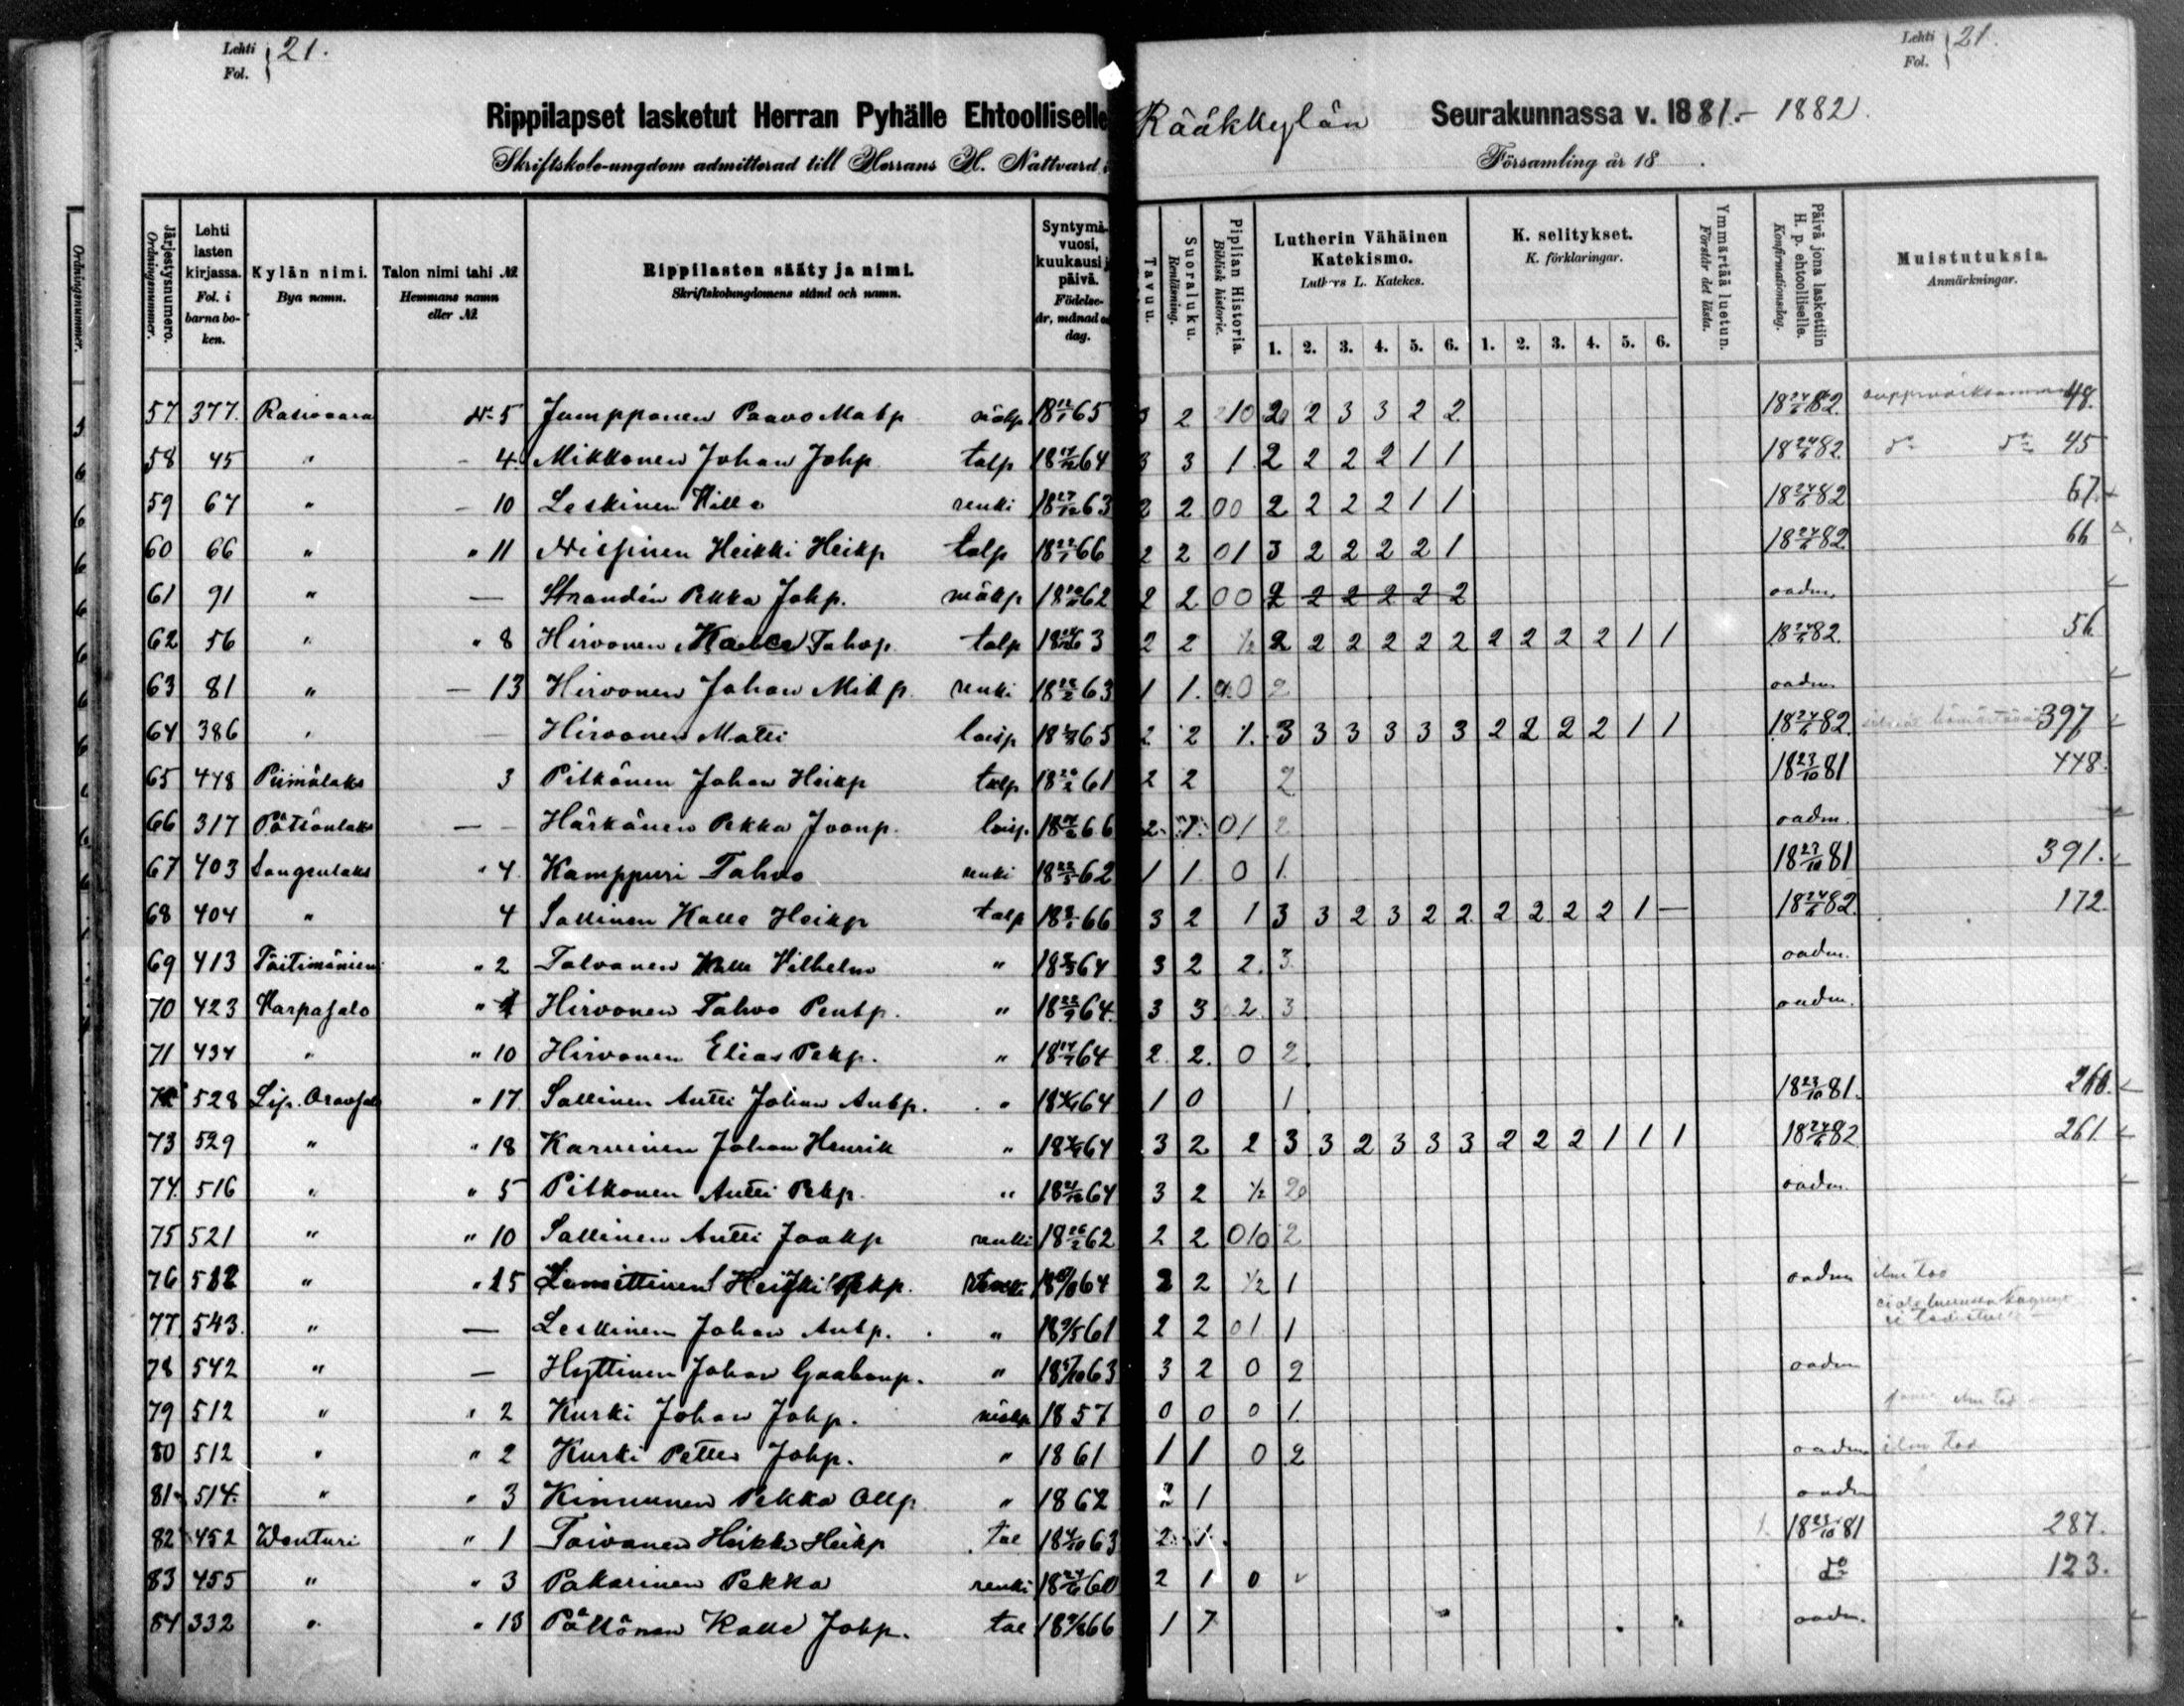 Lehti
Fol. } 21.
Lehti
Fol. } 21.
Rippilapset lasketut Herran Pyhälle Ehtoolliselle Rääkkylän Seurakunnassa v. 1881.- 1882.
Skriftskole-ungdom admitterad till Herrans H. Nattvard Församling år 18 .
Järjestysnumero. Ordningsnummer. | Lehti lasten kirjassa. Fol. i barna bo-ken. | Kylän nimi. Bya namn. | Talon nimi tahi № Hemmans namn eller № | Rippilasten sääty ja nimi. Skriftskolungdomens stånd och namn. | Syntymä-vuosi, kuukausi j päivä. Födelse-år, månad o dag. | Tavuu. | Suoraluku. Renläsning. | Piplian Historia. Biblisk historie. | Lutherin Vähäinen Katekismo. Luthers L. Katekes. 1. 2. 3. 4. 5. 6. | K. selitykset. K. förklaringar. 1. 2. 3. 4. 5. 6. | Ymmärtää luetun. Förstår det lästa. | Päivä jona laskettiin H. p. ehtoolliselle. Konfirmationsdag. | Muistutuksia. Anmärkningar.
57 377. Rasivaara № 5 Jumpponen Paavo Matp mäkp 18 65 3 2 10 2 2 3 3 2 2 18 24/6 82 48.
58 45 " - 4. Mikkonen Johan Johp talp 18 64 3 3 1. 2 2 2 2 1 1 18 24/6 82 do do 45
59 67 " - 10 Leskinen Ville renki 18 27/12 63 2 2 00 2 2 2 2 1 1 18 24/6 82 67.
60 66 " " 11 Nissinen Heikki Heikp talp 18 66 2 2 01 3 2 2 2 2 1 18 24/6 82 66
61 91 " — Strandén Pekka Johp. mäkp 18 62 2 2 00 2 2 2 2 2 2 oadm.
62 56 " " 8 Hirvonen Kalle Tahvp. talp 18 63 2 2 1/2 2 2 2 2 2 2 2 2 2 2 1 1 18 24/6 82. 56
63 81 " — 13 Hirvonen Johan Mikp. renki 18 63 1 1. 0 2 oadm.
64 386 " — Hirvonen Matti loisp 18 65 2 2 1. 3 3 3 3 3 3 2 2 2 2 1 1 18 24/6 82. 397
65 448 Piimälaks 3 Pitkänen Johan Heikp talp 18 61 2 2 2 18 23/10 81 448.
66 317 Pötsönlaks — Härkänen Pekka Joonp. loisp. 18 66 2. 1. 01 2 oadm.
67 403 Sangenlaks " 4 Kamppuri Tahvo renki 18 62 1 1 0 1. 18 23/10 81 391.
68 404 " 4 Sallinen Kalle Heikp talp 18 66 3 2 1 3 3 2 3 2 2 2 2 2 2 1 — 18 24/6 82. 172
69 413 Täitimäniemi " 2 Talvanen Kalle Vilhelm " 18 64 3 2 2. 3. oadm.
70 423 Varpasalo " 4 Hirvonen Tahvo Pentp. " 18 64. 3 3 2. 3 oadm.
71 434 " " 10 Hirvonen Elias Pekp. " 18 64 2. 2. 0 2.
72 528 Lip. Oravisalo " 17. Sallinen Antti Johan Antp. " 18 64 1 0 1. 18 23/10 81. 260.
73 529 " " 18 Karvinen Johan Henrik " 18 64 3 2 2 3 3 2 3 3 3 2 2 2 1 1 1 18 24/6 82 261
74. 516 " " 5 Pitkonen Antti Pekp. " 18 64 3 2 1/2 20 oadm.
75 521 " " 10 Sallinen Antti Jaakp renki 18 26/2 62 2 2 0/0 2
76 582 " " 15 Lamsittinen Heikki Pekp. renki 18 64 2 2 1/2 1 oadm ilm tod
77 543. " — Leskinen Johan Antp. " 18 9/5 61 2 2 01 1
78 542 " — Hyttinen Johan Gaabonp. " 18 63 3 2 0 2 oadm
79 512 " " 2 Kurki Johan Johp. mäkp 1857 0 0 0 1. ilm tod
80 512 " " 2 Kurki Petter Johp. " 1861 1 1 0 2 oadm ilm tod
81 514. " " 3 Kinnunen Pekka Ollp " 1862 2 1 oadm
82 452 Wenturi " 1 Toivanen Heikki Heikp tal 18 4/10 63 2. 1. 18 23/10 81 287.
83 455 " " 3 Pakarinen Pekka renki 18 24/6 60 2 1 0 do 123.
84 332 " " 13 Pöllönen Kalle Johp. tal 18 66 1 7 oadm.